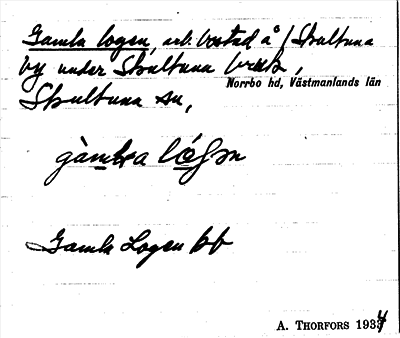 Gamla logen, arb. bostad å /Skultuna
by under Skultuna bruk,
Norrbo hd, Västmanlands län
Skultuna sn,
gàmla lógen
Gamla Logen bf
A. THORFORS 1934